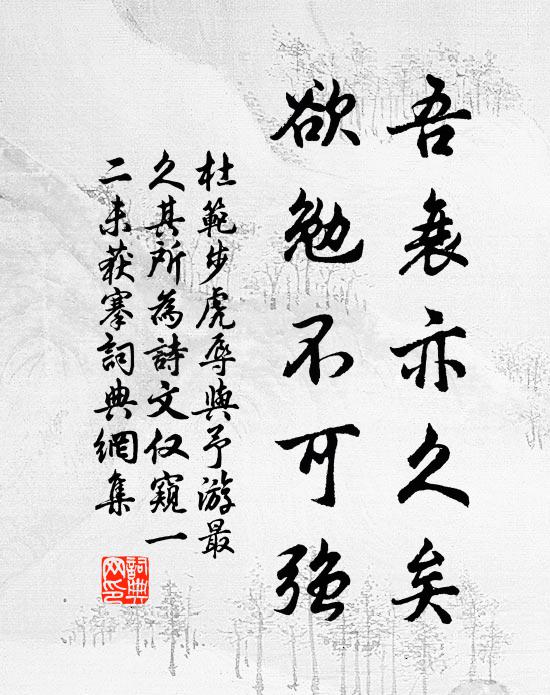 吾衰亦久矣
欲勉不可強
杜範步虎辱與予游最
久其所為詩文仅窺一
二未获搴詞典網集
詞典
网印